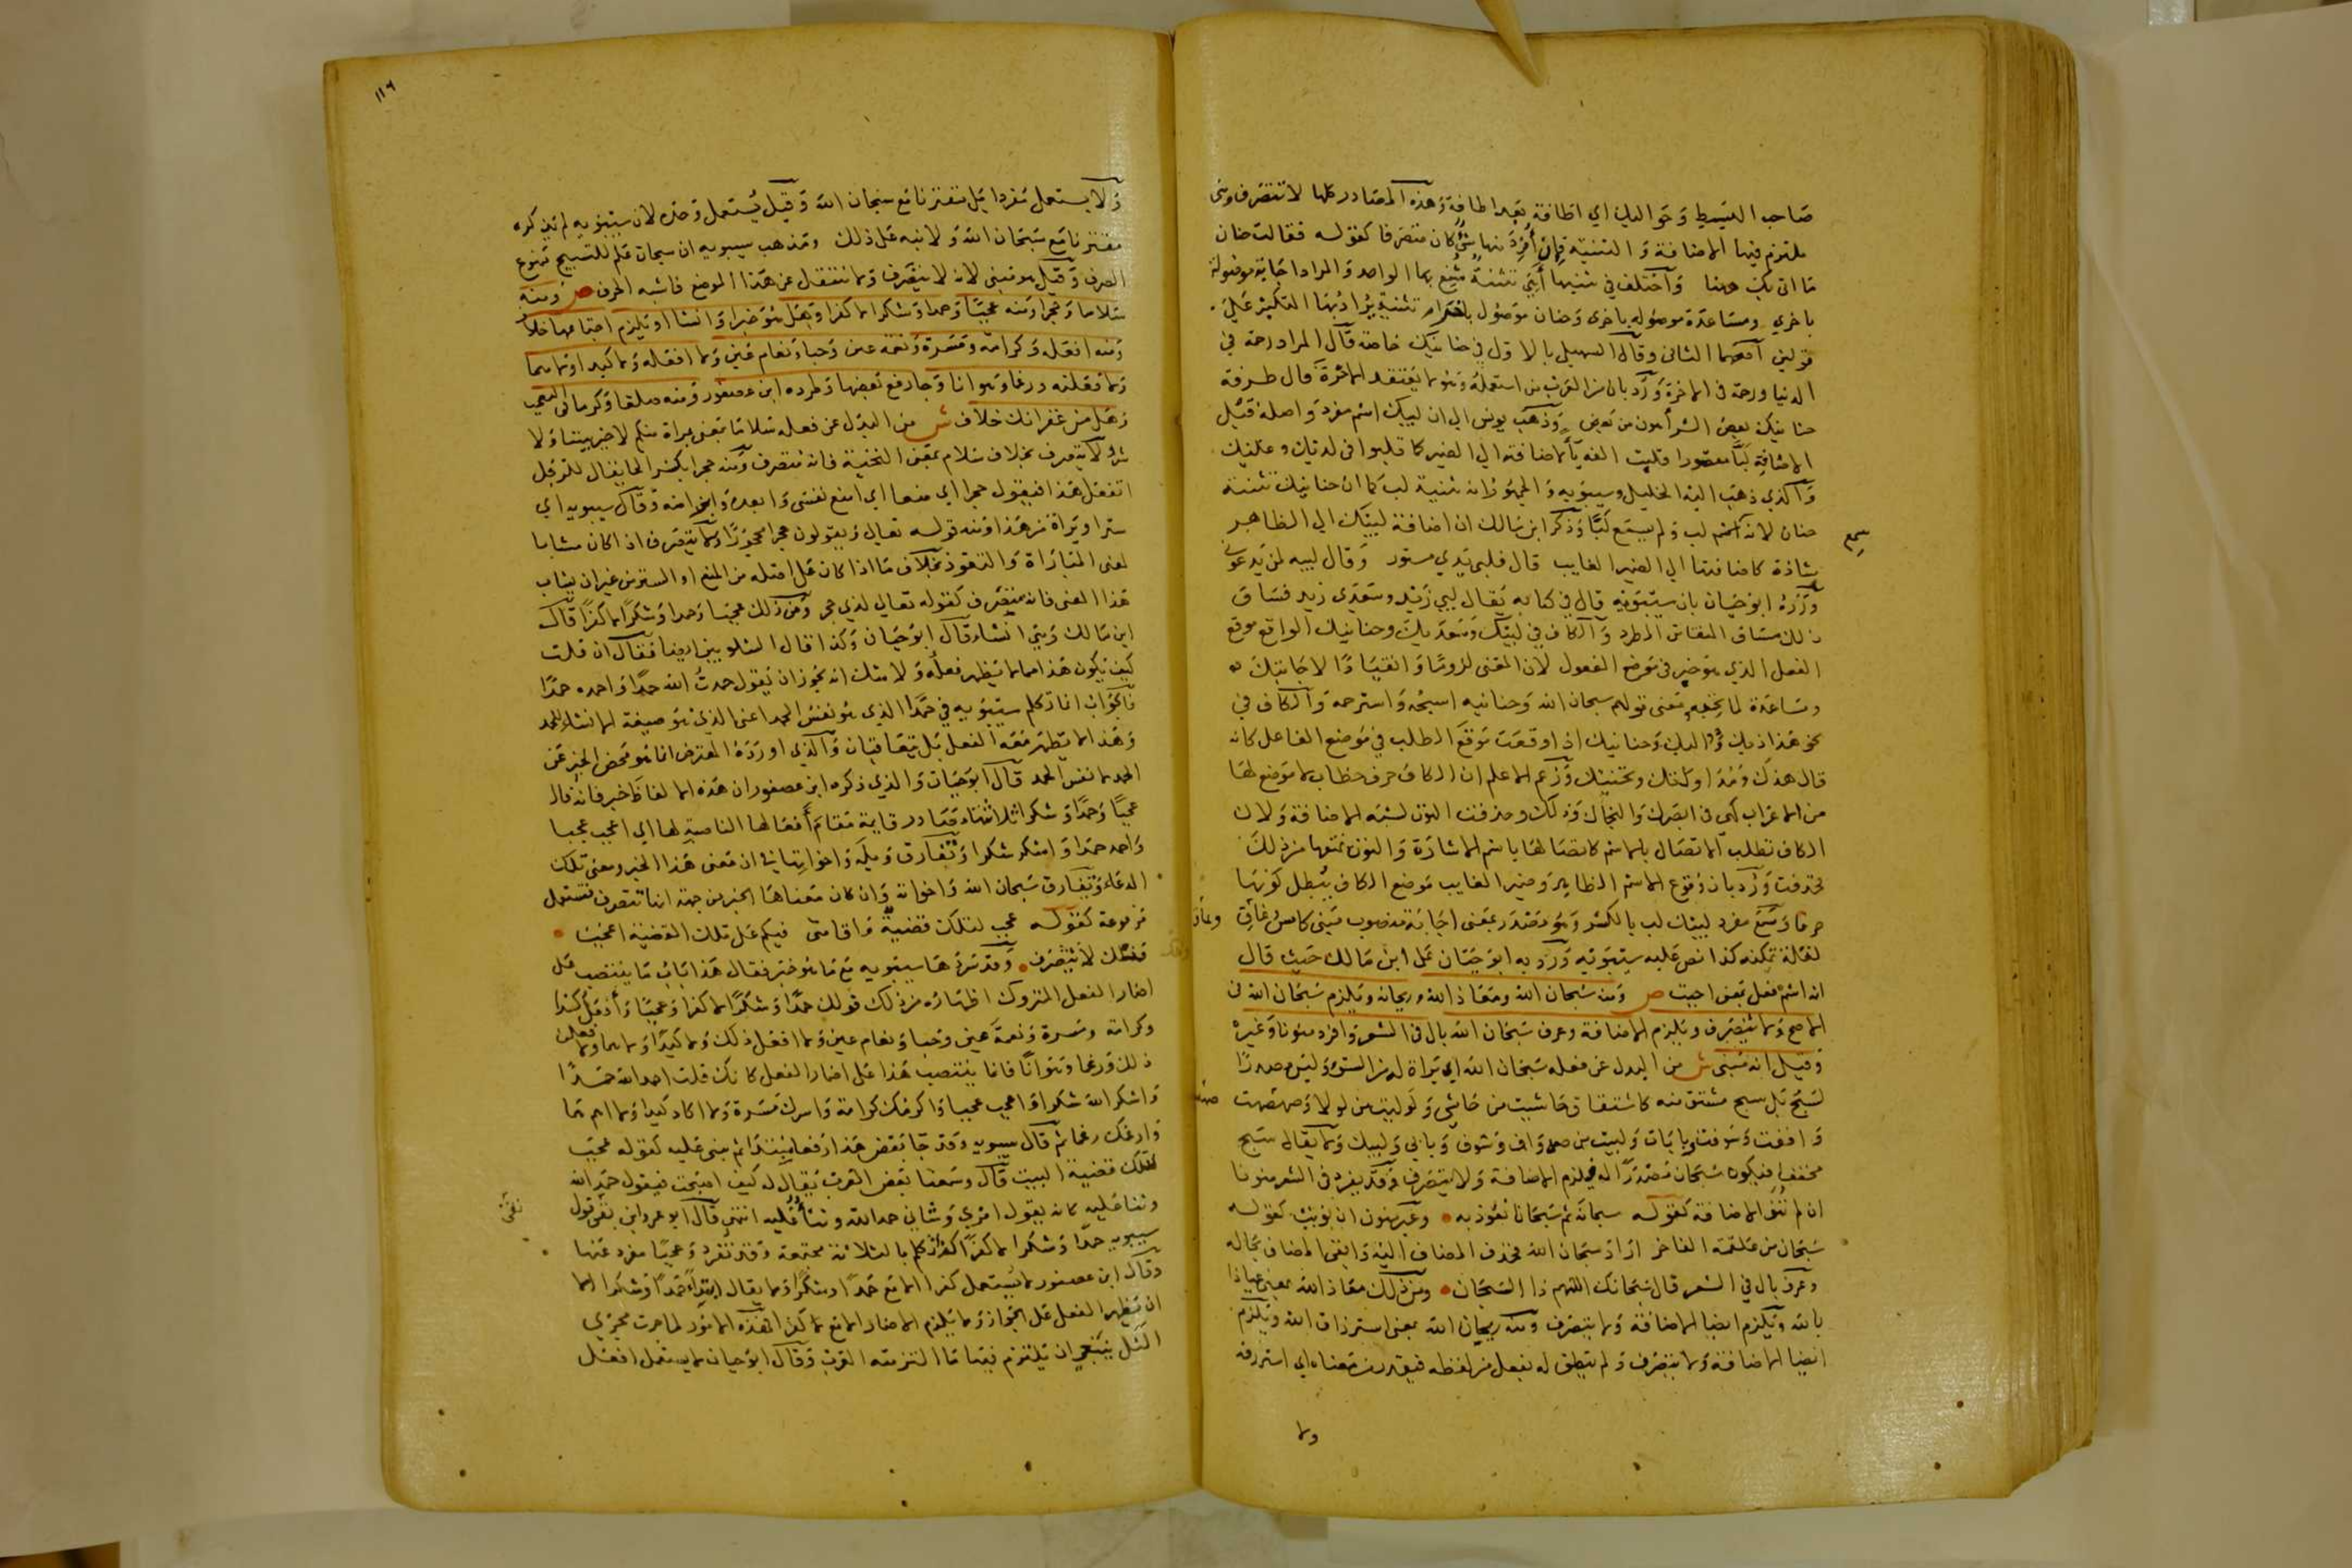 صاحب البسيط وحواليك اي اطافة بعد اطافة وهذه المصادر كلها لا تتصرف وشي
ملتزم فيها الاضافة والتثنية فان أفرد منها شي كان متصرفا كقوله فقالت حنان
ما اتى بك ههنا واختلف في تثنيها أهي تثنية يشفع بها الواحد والمراد اجابة موصولة
باخري ومساعدة موصوله باخرى وحنان موصول باخر ام تثنية يراد بها التكثير علي
قولين اصحهما الثاني وقال السهيلي بالاول في حنانيك خاصة قال المراد رحمة في
الدنيا ورحمة في الاخرة ورد بان من العرب من استعمله وهو لا يعتقد الاخرة قال طرفة
حنانيك بعض الشر أهون من بعض وذهب يونس الي ان لبيك اسم مفرد واصله قبل
الاضافة لبَّا مقصورا قلبت الفه يأ لاضافته الي الضمير كما قلبوا في لديك وعليك
والذي ذهب اليه الخليل وسيبويه والجمهور انه تثنية لب كما ان حنانيك تثنية
حنان لانه سمع لب ولم يسمع لبَّا وذكر ابن مالك ان اضافة لبيك الي الظاهر
سمع
شاذة كاضافتها الي الضمير الغايب قال فلبي يدي مسور وقال لبيه لمن يدعوني
ورده ابو حيان بان سيبويه قال في كتابه يقال لبي زيد وسعدي زيد فساق
ذلك مساق المقاس المطرد والكاف في لبيك وسعديك وحنانيك الواقع موقع
الفعل الذي هو خبر في موضع المفعول لان المعنى لزوما وانقيادا لاجابتك
ومساعدة لما تحبه ومعنى قولهم سبحان الله وحنانيه اسبحه واسترحمه والكاف في
نحو هذاذيك ودواليك وحنانيك اذا وقعت موقع الطلب في موضع الفاعل كانه
قال هذك ومداولتك وتحننك وزعم الاعلم ان الكاف حرف خطاب لا موضع لها
من الاعراب كهي في ابصرك والنجاك وذلك وحذفت النون لشبه الاضافة ولان
الكاف تطلب الاتصال بالاسم كاتصالها باسم الاشارة والنون تمنعها من ذلك
فحذفت ورد بان وقوع الاسم الظاهر وضمير الغايب موضع الكاف يبطل كونها
حرفا وسمع مفرد لبيك لب بالكسر وهو مصدر بمعنى اجابة منصوب مبني كامس وغاق
لقلة تمكنه كذا نص عليه سيبويه ورد به ابو حيان على ابن مالك حيث قال
انه اسم فعل بمعنى اجبت ص ومنه سبحان الله ومعاذ الله وريحانه ويلزم سبحان الله في
الاصح ولا يتصرف ويلزم الاضافة وعرف سبحان الله بال في الشعر وافرد منونا وغيره
وقيل انه مبني ش من البدل عن فعله سبحان الله اي براة له من السوء وليس مصدرا
لسبح بل سبح مشتق منه كاشتقاق حاشيت من حاشي ولوليت من لولا وصهصهت
وأففت وسوفت وبابات ولبيت من صه واف وسوف وبابي ولبيك ولا يقال سبح
مخففا فيكون سبحان مصدرا له فيلزم الاضافة ولا يتصرف وقد يفرد في الشعر منونا
ان لم تنو الاضافة كقوله سبحانه ثم سبحانا نعوذ به وغير منون ان نويت كقوله
سبحان من علقمة الفاخر اراد سبحان الله فحذف المضاف اليه وابقى المضاف بحاله
وعرف بال في الشعر قال سبحانك اللهم ذا السبحان ومن ذلك معاذ الله بمعنى عياذا
بالله ويلزم ايضا الاضافة ولا يتصرف ومنه ريحان الله بمعنى استرزاق الله ويلزم
ايضا الاضافة ولا يتصرف ولم ينطق له بفعل من لفظه فيقدر من معناه اي استرزقه
ولا
١١٦
ولا يستعمل مفردا بل مقترنا مع سبحان الله وقيل يستعمل وحده لان سيبويه لم يذكره
مقترنا مع سبحان الله ولا نبه على ذلك ومذهب سيبويه ان سبحان علم للتسبيح ممنوع
الصرف وقيل هو مبني لانه لا يتصرف ولا ينتقل عن هذا الموضع فاشبه الحرف ص ومنه
سلاما وحجرا ومنه عجبا وحمدا وشكرا لا كفرا وهل هو خبر او انشا او يلزم اجتماعها خلاف
ومنه افعله وكرامة ومسرة ونعمة عين وحبا ونعام عين ولا افعله ولا كيدا ولا هما
ولافعلنه ورغما وهوانا وجا رفع بعضها وطرده ابن عصفور ومنه صلفا وكرما في التعجب
وهل منه غفرانك خلاف ش من البدل عن فعله سلاما بمعنى براة منكم لا خير بيننا ولا
شر ولا يتصرف بخلاف سلام بمعنى التحية فانه متصرف ومنه حجرا بكسر الحا يقال للرجل
اتفعل هذا فيقول حجرا اي منعا اي امنع نفسي وابعده وابرأ منه وقال سيبويه اي
سترا وبراة من هذا ومنه قوله تعالى ويقولون حجرا محجورا ولا يتصرف اذا كان مشابها
لمعنى المباراة والتعوذ بخلاف ما اذا كان على اصله من المنع او الستر من غير ان يشاب
هذا المعنى فانه يتصرف كقوله تعالى لذي حجر ومن ذلك عجبا وحمدا وشكرا لا كفرا قال
ابن مالك وهي انشا وقال ابو حيان وكذا قال الشلوبين ايضا فقال ان قلت
كيف يكون هذا مما لا يظهر فعله ولا شك انه يجوز ان يقول حمدت الله حمدا واحمده حمدا
فالجواب انما تكلم سيبويه في حمدا الذي هو نفس الحمد اعني الذي هو صيغة لانشا الحمد
وهذا لا يظهر معه الفعل بل يتعاقبان والذي اورده المعترض انما هو محض الخبر عن
الحمد لا نفس الحمد قال ابو حيان والذي ذكره ابن عصفور ان هذه الالفاظ خبر فانه قال
عجبا وحمدا وشكرا ثلاثتها مصادر قايمة مقام أفعالها الناصبة لها اي اعجب عجبا
واحمد حمدا واشكر شكرا وتفارق ويله واخواتها في ان معنى هذا الخبر ومعنى تلك
الدعاء وتفارق سبحان الله واخواته وان كان معناها الخبر من جهة انها تتصرف فتستعمل
مرفوعة كقوله عجب لتلك قضية واقامتي فيكم على تلك القضية اعجب
فتلك لا تتصرف وقد سردها سيبويه مع ما هو خبر فقال هذا باب ما ينتصب على
اضمار الفعل المتروك اظهاره من ذلك قولك حمدا وشكرا لا كفرا وعجبا وأفعل كذا
وكرامة ومسرة ونعمة عين وحبا ونعام عين ولا افعل ذلك ولا كيدا ولا هما ولافعلن
ذلك ورغما وهوانا فانما ينتصب هذا على اضمار الفعل كانك قلت احمد الله حمدا
واشكر الله شكرا واعجب عجبا واكرمك كرامة واسرك مسرة ولا اكاد كيدا ولا اهم هما
وارغمك رغما ثم قال سيبويه وقد جا بعض هذا رفعا يبتدا ثم يبنى عليه كقوله عجب
لتلك قضية البيت قال وسمعنا بعض العرب يقال له كيف اصبحت فيقول حمد الله
وثنا عليه كانه يقول امري وشاني حمد الله وثنأ عليه انتهى قال ابو عمرو ابن بقي قول
بقي
سيبويه حمدا وشكرا لا كفرا انما تكلم بالثلاثة مجتمعة وقد تفرد وعجبا مفرد عنها
وقال ابن عصفور لا يستعمل كفرا الا مع حمدا وشكرا ولا يقال ابتداء حمدا وشكرا الا
ان يظهر الفعل على الجواز ولا يلزم الاضمار الا مع لا كفرا فهذه الامور لما جرت مجرى
المثل ينبغي ان يلتزم فيها ما التزمته العرب وقال ابو حيان لا يستعمل افعل